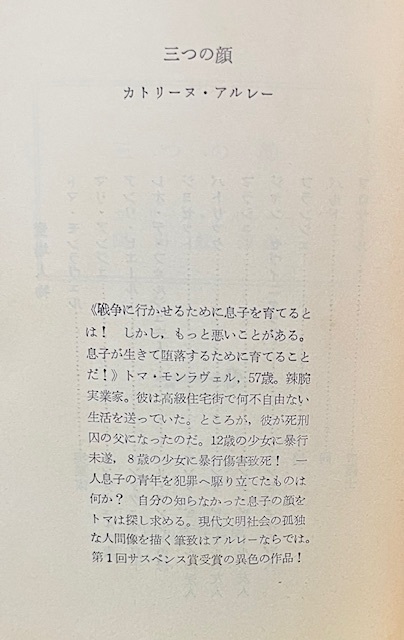 三つの顔
カトリーヌ・アルレー
《戦争に行かせるために息子を育てると
は！　しかし，もっと悪いことがある。
息子が生きて堕落するために育てること
だ！》トマ・モンラヴェル，57歳。辣腕
実業家。彼は高級住宅街で何不自由ない
生活を送っていた。ところが，彼が死刑
囚の父になったのだ。12歳の少女に暴行
未遂，８歳の少女に暴行傷害致死！　一
人息子の青年を犯罪へ駆り立てたものは
何か？　自分の知らなかった息子の顔を
トマは探し求める。現代文明社会の孤独
な人間像を描く筆致はアルレーならでは。
第１回サスペンス賞受賞の異色の作品！